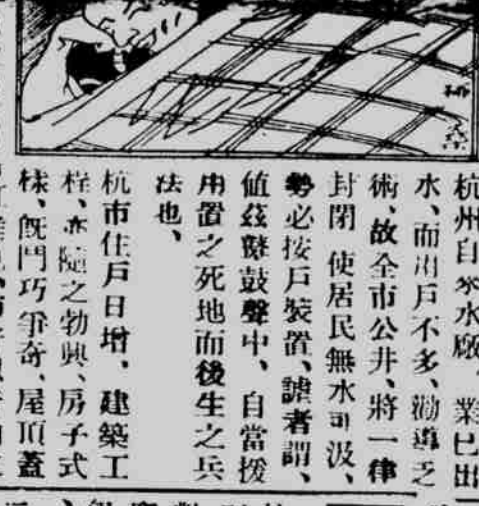 杭州自來水廠、業已出
水、而用戶不多、勸導之
術、故全市公井、將一律
封閉、使居民無水可汲、
勢必按戶裝置、謔者謂、
值茲鼙鼓聲中、自當援
用置之死地而後生之兵
法也、
杭市住戶日增、建築工
程、亦隨之勃興、房子式
樣、旣鬥巧爭奇、屋頂蓋